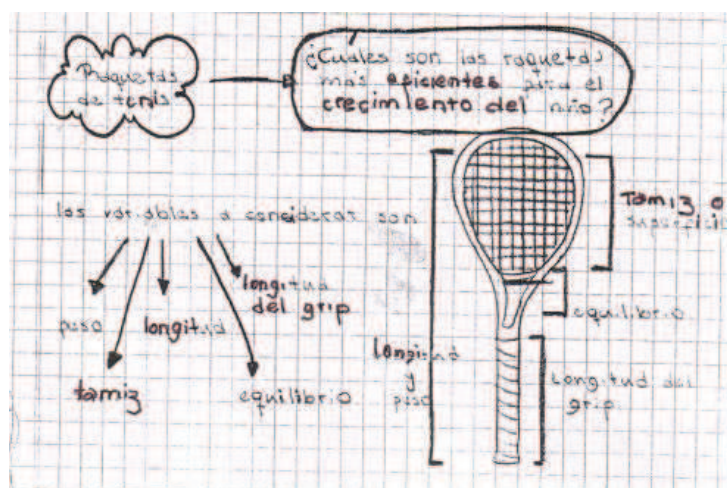 Raquetas
de tenis
¿Cuáles son las raquetas
más eficientes para el
crecimiento del niño?
las variables a considerar son
peso
longitud
longitud
del grip
tamiz
equilibrio
Tamiz o
superficie
equilibrio
longitud
y
peso
Longitud del
grip